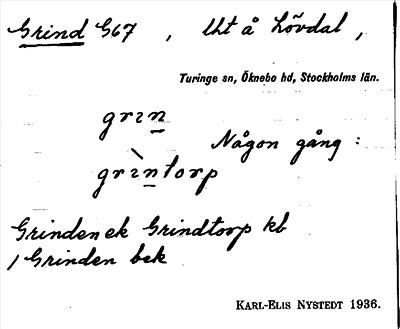 Grind G67, Uht å Lövdal,
Turinge sn, Öknebo hd, Stockholms län.
grin
Någon gång:
grìntorp
Grinden ek Grindtorp kb
/ Grinden bek
KARL-ELIS NYSTEDT 1936.